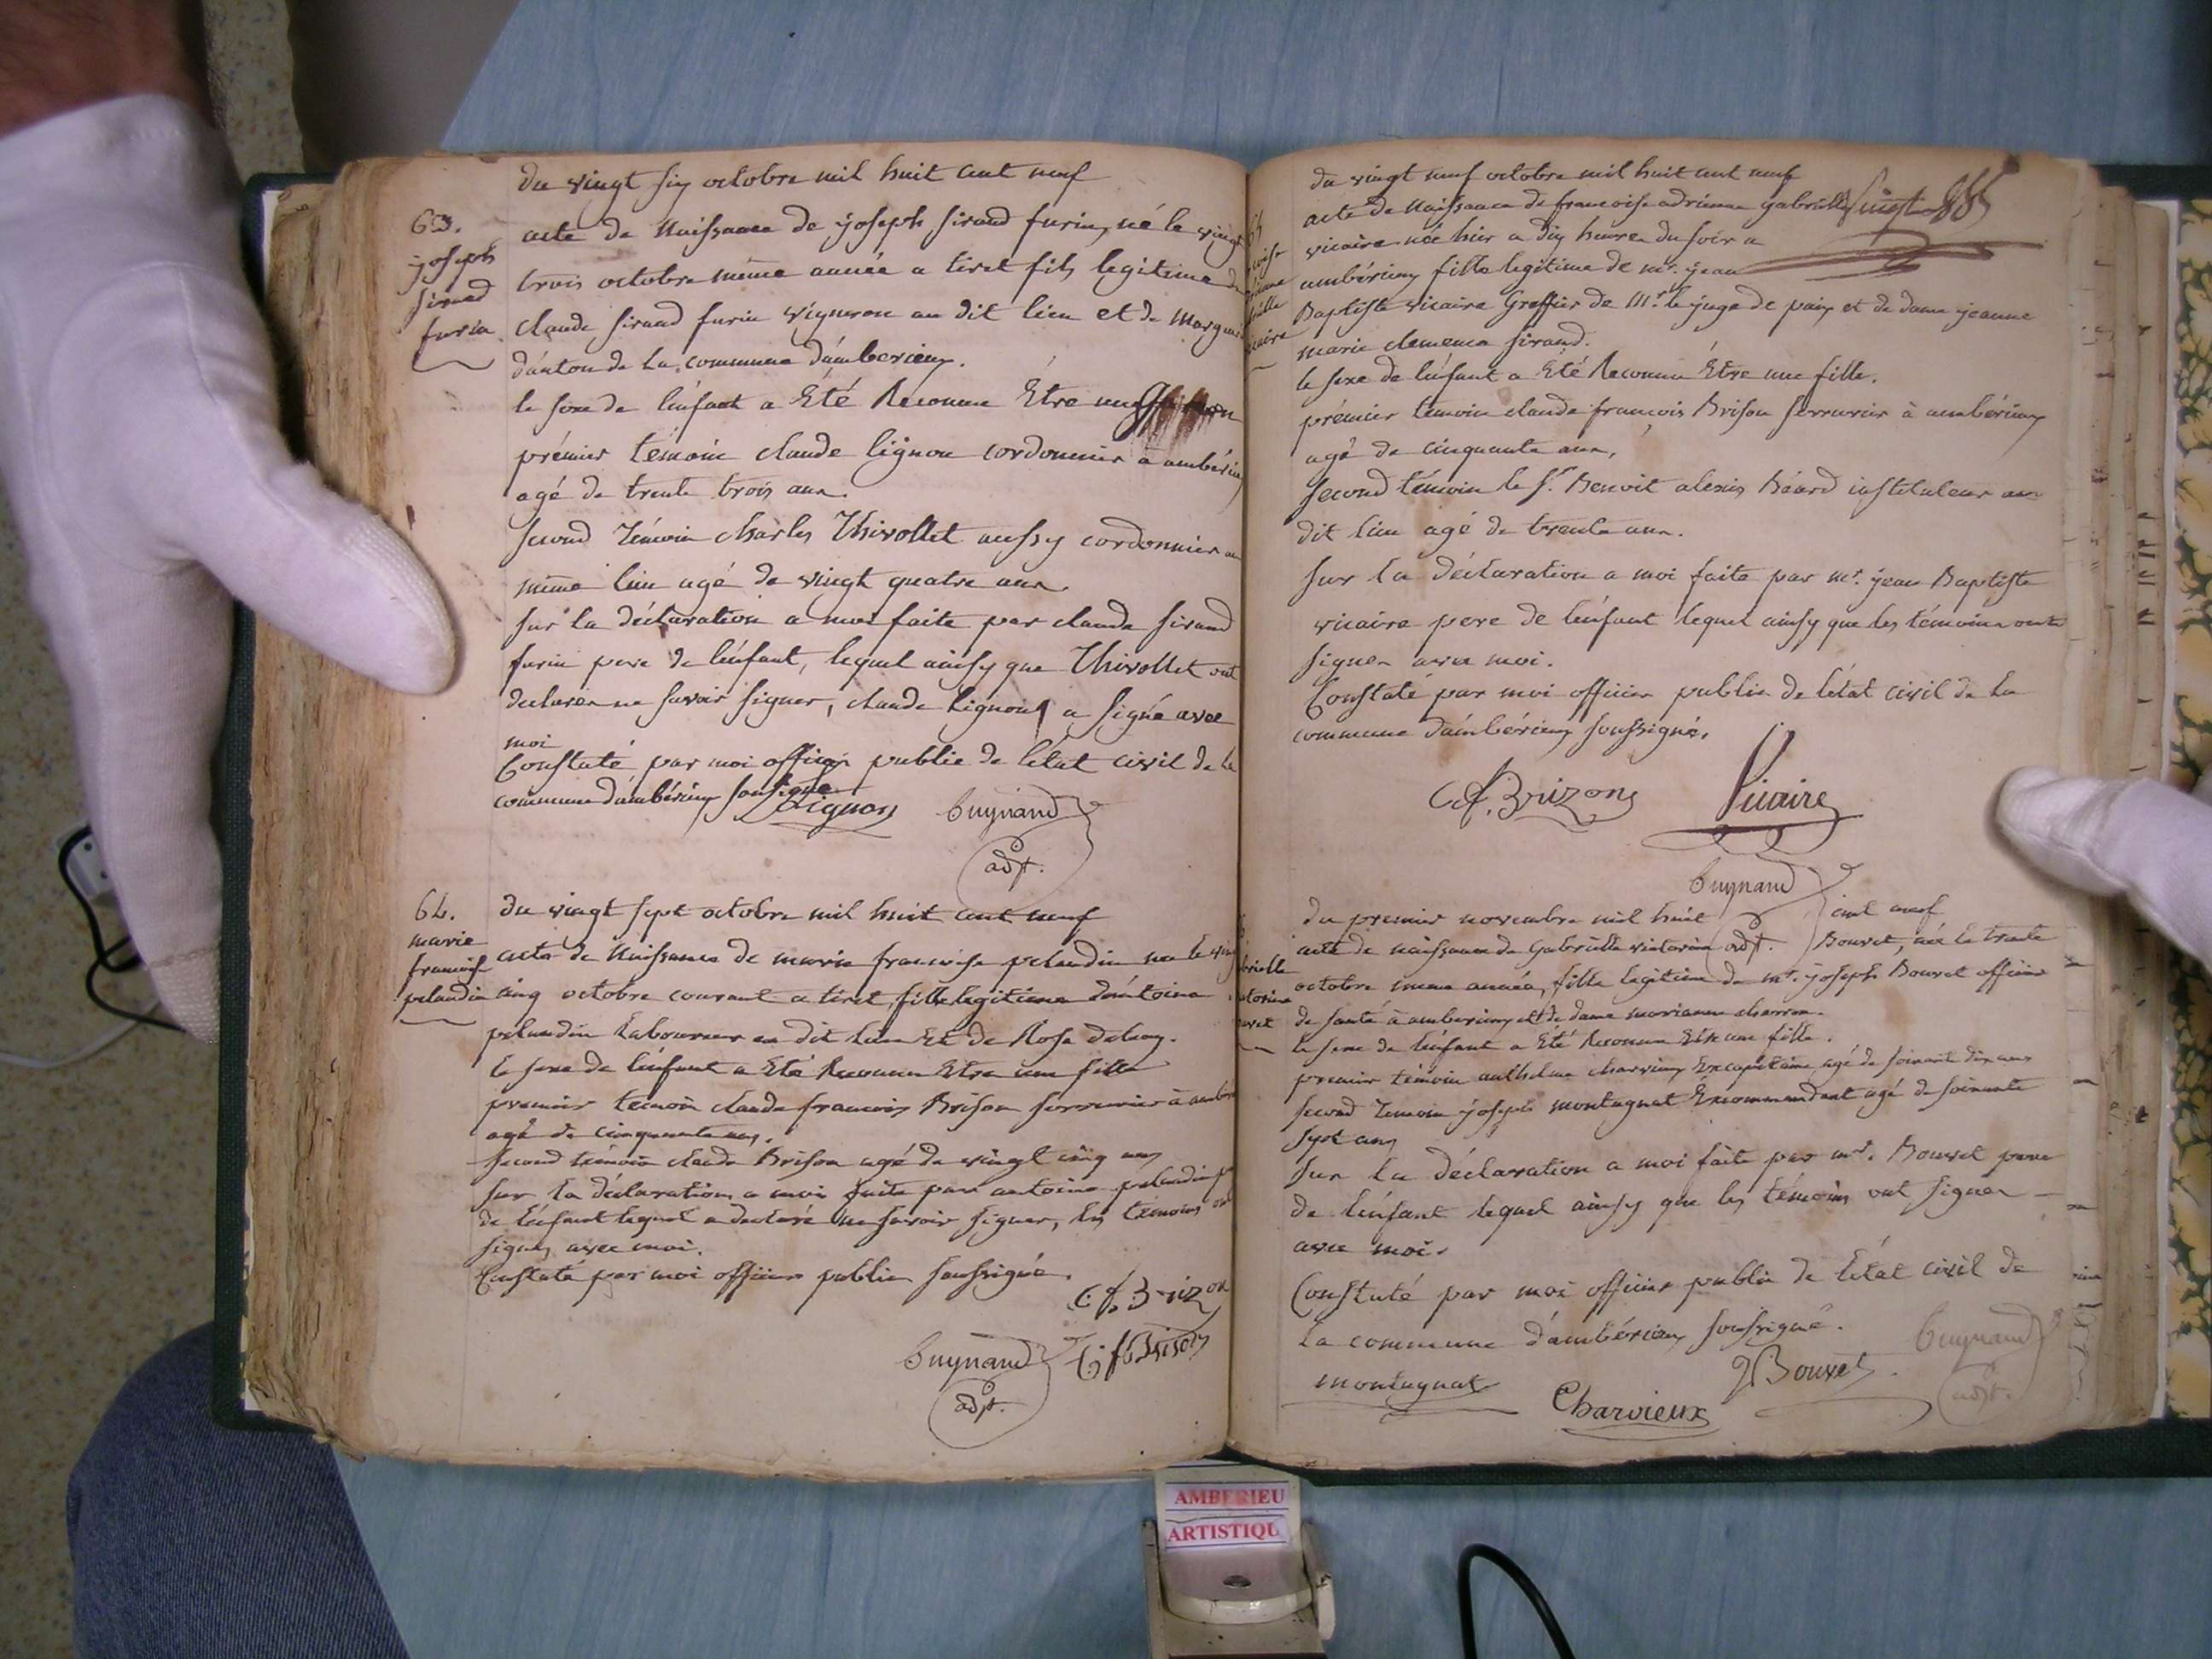 du vingt six octobre mil huit cent neuf
63.
joseph
sirand
furin
acte de Naissance de joseph sirand furin, né le vingt
trois octobre même année a tiret fils legitime de
claude sirand furin vigneron au dit lieu et de
dánton de la commune d'ámberieux.
le sexe de l'énfant a Eté Reconnu Être un
prémier témoin claude lignon cordonnier à ambérieux
agé de trente trois ans.
second témoin charles Thivollet aussy cordonnier au
même lieu agé de vingt quatre ans
sur la déclaration a moi faite par claude sirand
furin pere de l'énfant, lequel ainsy que Thivollet ont
declarer ne savoir signer, claude Lignon a signé avec
moi
Constaté par moi officier public de l'état civil de la
commune d'ámbérieux soussigné
Lignon
Guynand
adjt.
64.
marie
francoise
pelaudin
du vingt sept octobre mil huit cent neuf
acte de Naissance de marie francoise pelaudin née le vingt
cinq octobre courant a tiret, fille legitime d'ántoine
pelaudin Laboureur au dit lieu Et de Rose
le sexe de l'énfant a Eté Reconnu Etre une fille
premier temoin claude francois Brison serrurier à
agé de cinquante ans.
second témoin claude Brison agé de vingt cinq ans
sur la déclaration a moi faite par antoine pelaudin
de l'énfant lequel a declaré ne savoir signer, les temoins ont
signés avec moi.
Constaté par moi officier public soussigné.
C.f. Brizon
Guynand
adjt.
C f Brison
du vingt neuf octobre mil huit cent neuf
acte de Naissance de francoise adrienne gabrielle
vicaire née hier a dix heures du soir a
ambérieux fille legitime de mr. jean
Baptiste vicaire Greffier de Mr. le juge de paix et de dame jeanne
marie clemence sirand.
le sexe de l'énfant a Eté Reconnu Être une fille.
prémier temoin claude françois Brison serrurier à ambérieux
agé de cinquante ans,
second témoin le Sr. Benoit alexis Béard instituteur au
dit lieu agé de trente ans.
sur la déclaration a moi faite par mr. jean Baptiste
vicaire pere de l'énfant lequel ainsy que les témoins ont
signer avec moi.
Constaté par moi officier public de l'état civil de la
commune d'ámbérieux soussigné.
C f. Brizon
Vicaire
Guynand
adjt.
du premier novembre mil huit cent neuf
acte de naissance de Gabrielle victorine Bouvet, née le trente
octobre même année, fille legitime de mr. joseph Bouvet officier
de santé à amberieux et de dame marianne charron.
le sexe de l'énfant a Eté Reconnu Etre une fille.
premier témoin anthelme charvieux Excapitaine agé de soixante dix ans
second témoin joseph montagnat Excommandant agé de soixante
sept ans
sur la déclaration a moi faite par mr. Bouvet pere
de l'énfant lequel ainsy que les témoins ont signer
avec moi.
Constaté par moi officier public de l'état civil de
la commune d'ámbérieux soussigné.
Guynand
adjt.
montagnat
Charvieux
J Bouvet
AMBERIEU
ARTISTIQU